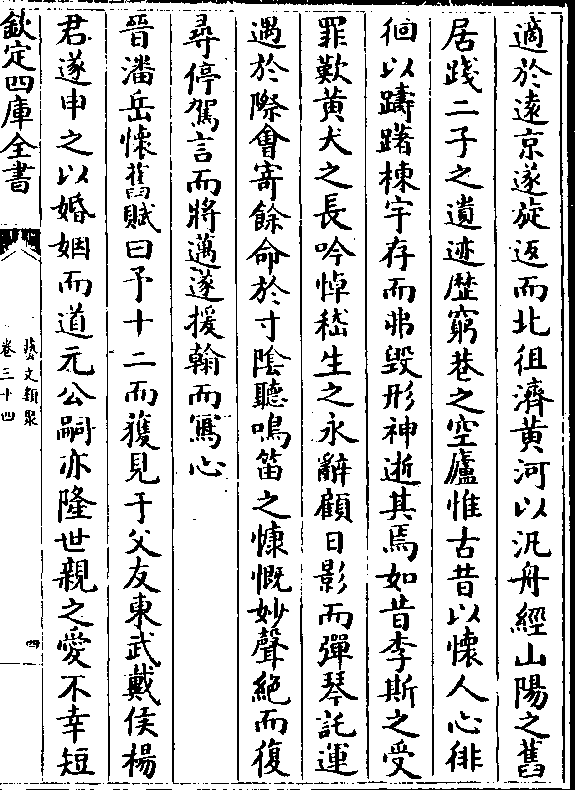 適於遠京遂旋返而北徂濟黄河以汎舟經山陽之舊
居踐二子之遺迹歴窮巷之空廬惟古昔以懷人心徘
徊以躊躇棟宇存而弗毁形神逝其焉如昔李斯之受
罪歎黄犬之長吟悼嵇生之永辭顧日影而彈琴託運
遇於際會寄餘命於寸陰聽鳴笛之慷慨妙聲絶而復
尋停駕言而將邁遂援翰而寫心
晉潘岳懷舊賦曰予十二而獲見于父友東武戴侯楊
君遂申之以婚姻而道元公嗣亦隆世親之愛不幸短
欽定四庫全書
藝文類聚
卷三十四
四